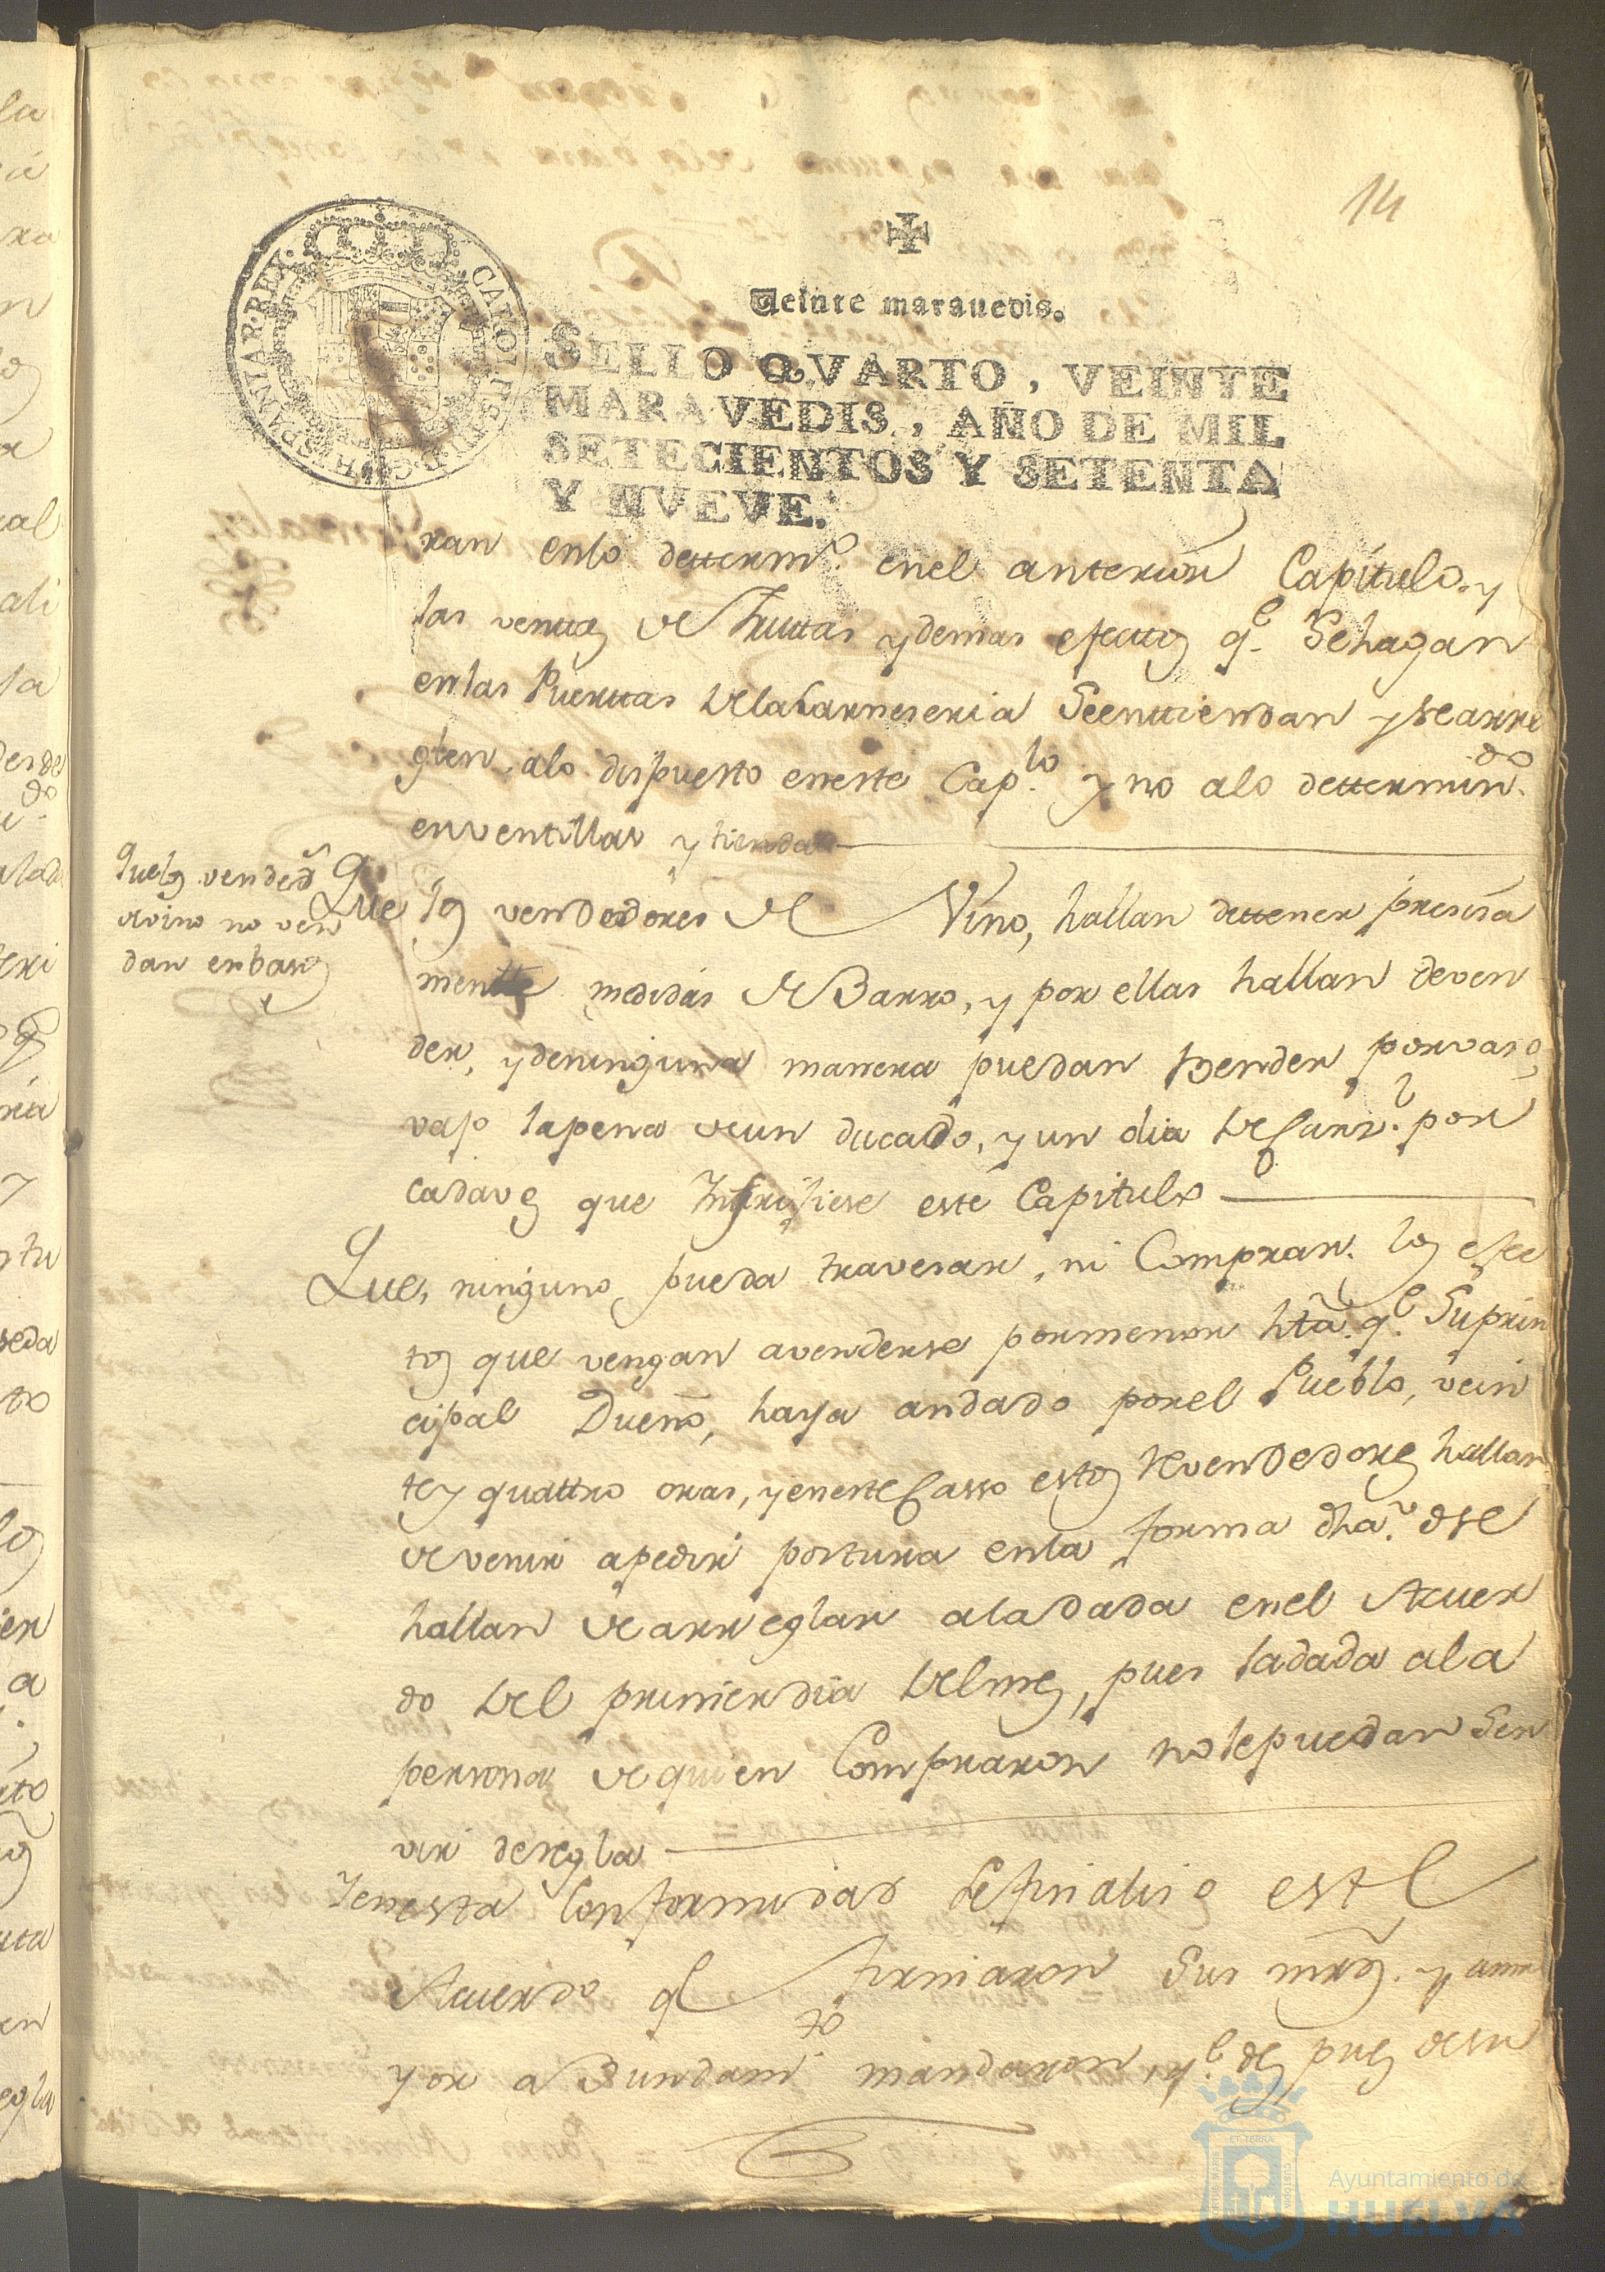 14
CAROL III D G HISPANIAR REX
Veinte marauedis.
SELLO QVARTO, VEINTE
MARAVEDIS, AÑO DE MIL
SETECIENTOS Y SETENTA
Y NVEVE.
ran enlo detterm.º enel anterior Capitulo, y
las venttas de fruttas y demas efecttos q.e Sehagan
enlas Puerttas dela Carneseria Seenttiendan y se arre
glen, alo dispuesto eneste Cap.lo y no alo dettermin.do
enventillas y tiendas
Que los vended.s
de vino no ven
dan enbasos
Que los vendedores de Vino, hallan dettener presisa
mentte medidas de Barro, y por ellas hallan deven
der, y deninguna manera puedan Vender por vasos,
vajo lapena deun ducado, y un dia de Carz.l por
cadaves que Infrijiese este Capitulo
Que, ninguno pueda travesar, ni Comprar. los efec
tos que vengan avenderse pormenor htã. q.e Suprin
cipal Dueño, haya andado porel Pueblo, vein
te y quattro oras, y eneste Casso estos revendedores hallan
de venir apedir postura enla forma dha. y se
hallan de arreglar ala dada enel Acuer
do del primer dia del mes, pues ladada ala
persona de quien Compraron nolepuedan Ser
vir deregla
Yenesta Conformidad Sefinaliso este
Acuerdo q.e firmaron Sus mrds. y
y or a Bundam.to mandaron, q.e des pues desu
Ayuntamiento de
HUELVA